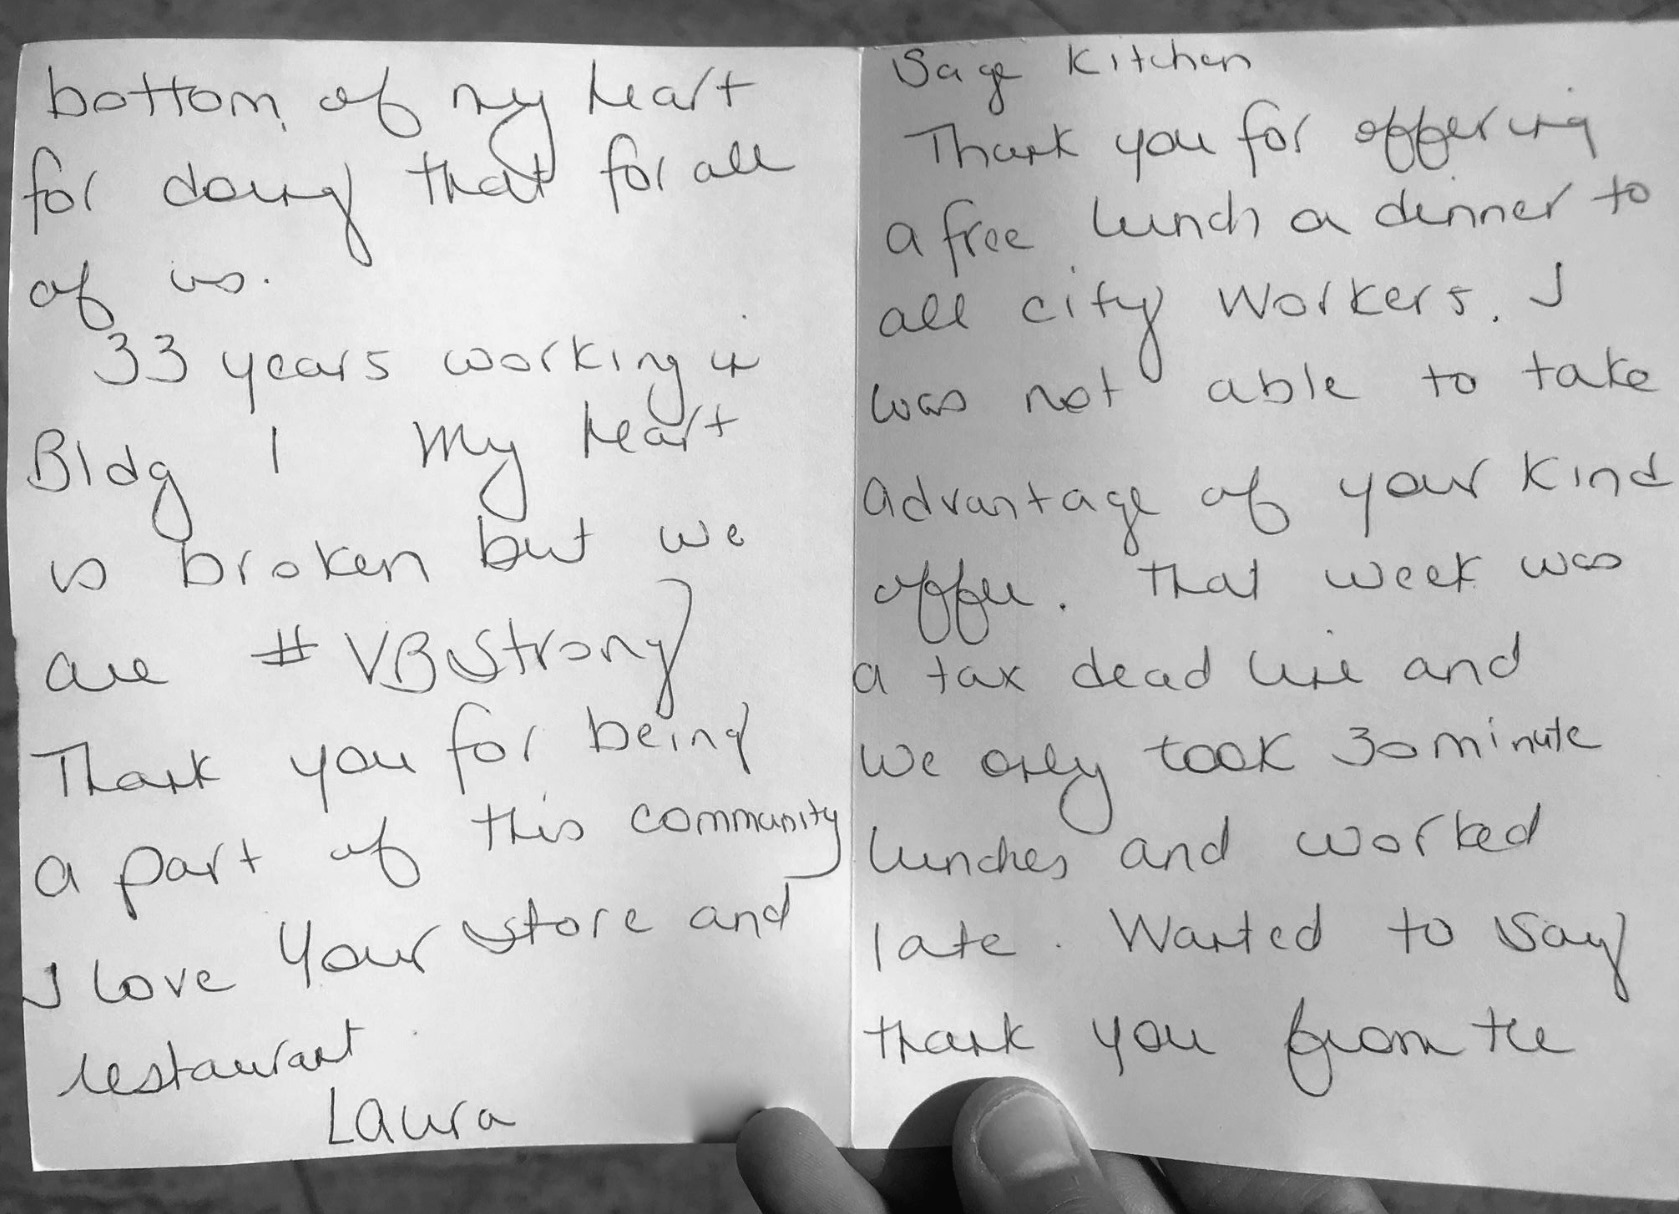 Sage Kitchen
Thank you for offering
a free lunch or dinner to
all city workers. I
was not able to take
advantage of your kind
offer. That week was
a tax dead line and
we only took 30 minute
lunches and worked
late. Wanted to say
thank you from the
bottom of my heart
for doing that for all
of us.
33 years working in
Bldg 1 My heart
is broken but we
are #VBStrong
Thank you for being
a part of this community
I love your store and
restaurant
Laura